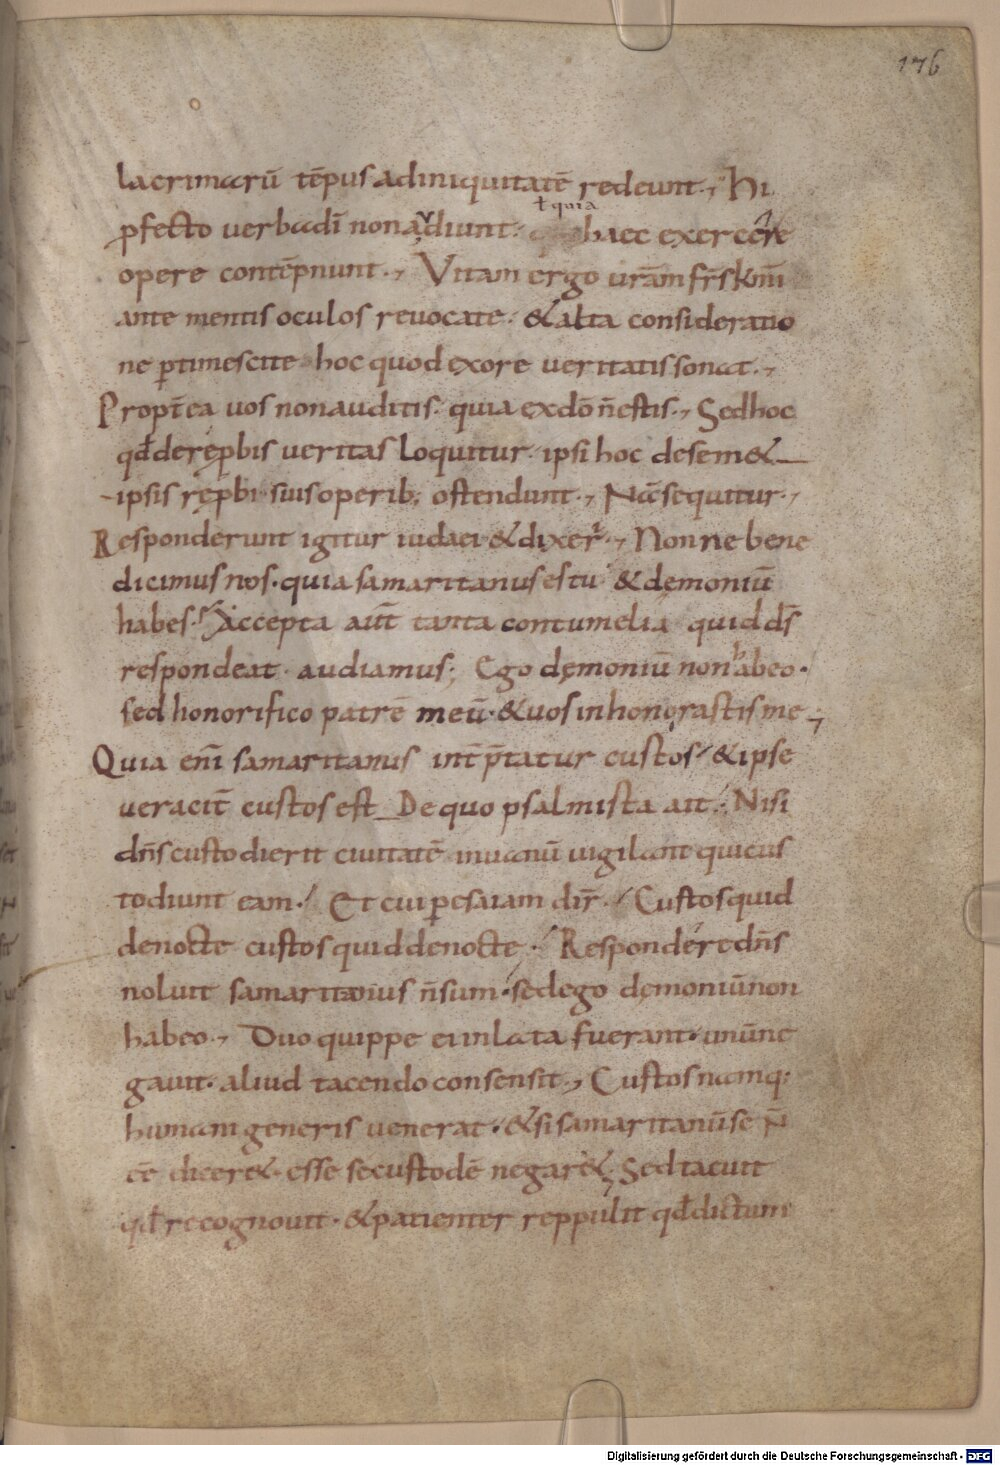 176
lacrimarū tēpus ad iniquitatē redeunt., Hi
ꝓfecto verba dī non audiunt. ł quia haec exercere
opere contēpnunt., Vitam ergo vrām frs̄ kmī
ante mentis oculos revocate. & alta consideratio
ne ꝑtimescite hoc quod ex ore veritatis sonat.,
Propt̄ea vos non auditis. quia ex dō n̄ estis., Sed hoc
qđ de rep̱bis veritas loquitur. ipsi hoc de sem&
ipsis rep̱bi suis operib; ostendunt., Nā sequitur.,
Responderunt igitur iudaei & dixer̄., Nonne bene
dicimus nos. quia samaritanus es tu & dęmoniū
habes. Accepta aut̄ tanta contumelia quid dn̄s
respondeat. audiamus; Ego dęmoniū non habeo.
sed honorifico patrē meū. & vos inhonorastis me.,
Quia enī samaritanus int̄p̄tatur custos. & ipse
veracit̄ custos est. De quo psalmista ait. Nisi
dn̄s custodierit civitatē in vanū vigilant qui cus
todiunt eam. Et cui ꝑ esaiam dir̄. Custos quid
de nocte custos quid de nocte. Respondere dn̄s
noluit samaritanus n̄ sum. sed ego dęmoniū non
habeo., Duo quippe ei inlata fuerant. unū ne
gavit. aliud tacendo consensit., Custos namq;
humani generis venerat. & si samaritanū se n̄
eē dicer&. esse se custodē negar&. Sed tacuit
qđ recognovit. & patienter reppulit qđ dictum
Digitalisierung gefördert durch die Deutsche Forschungsgemeinschaft - DFG